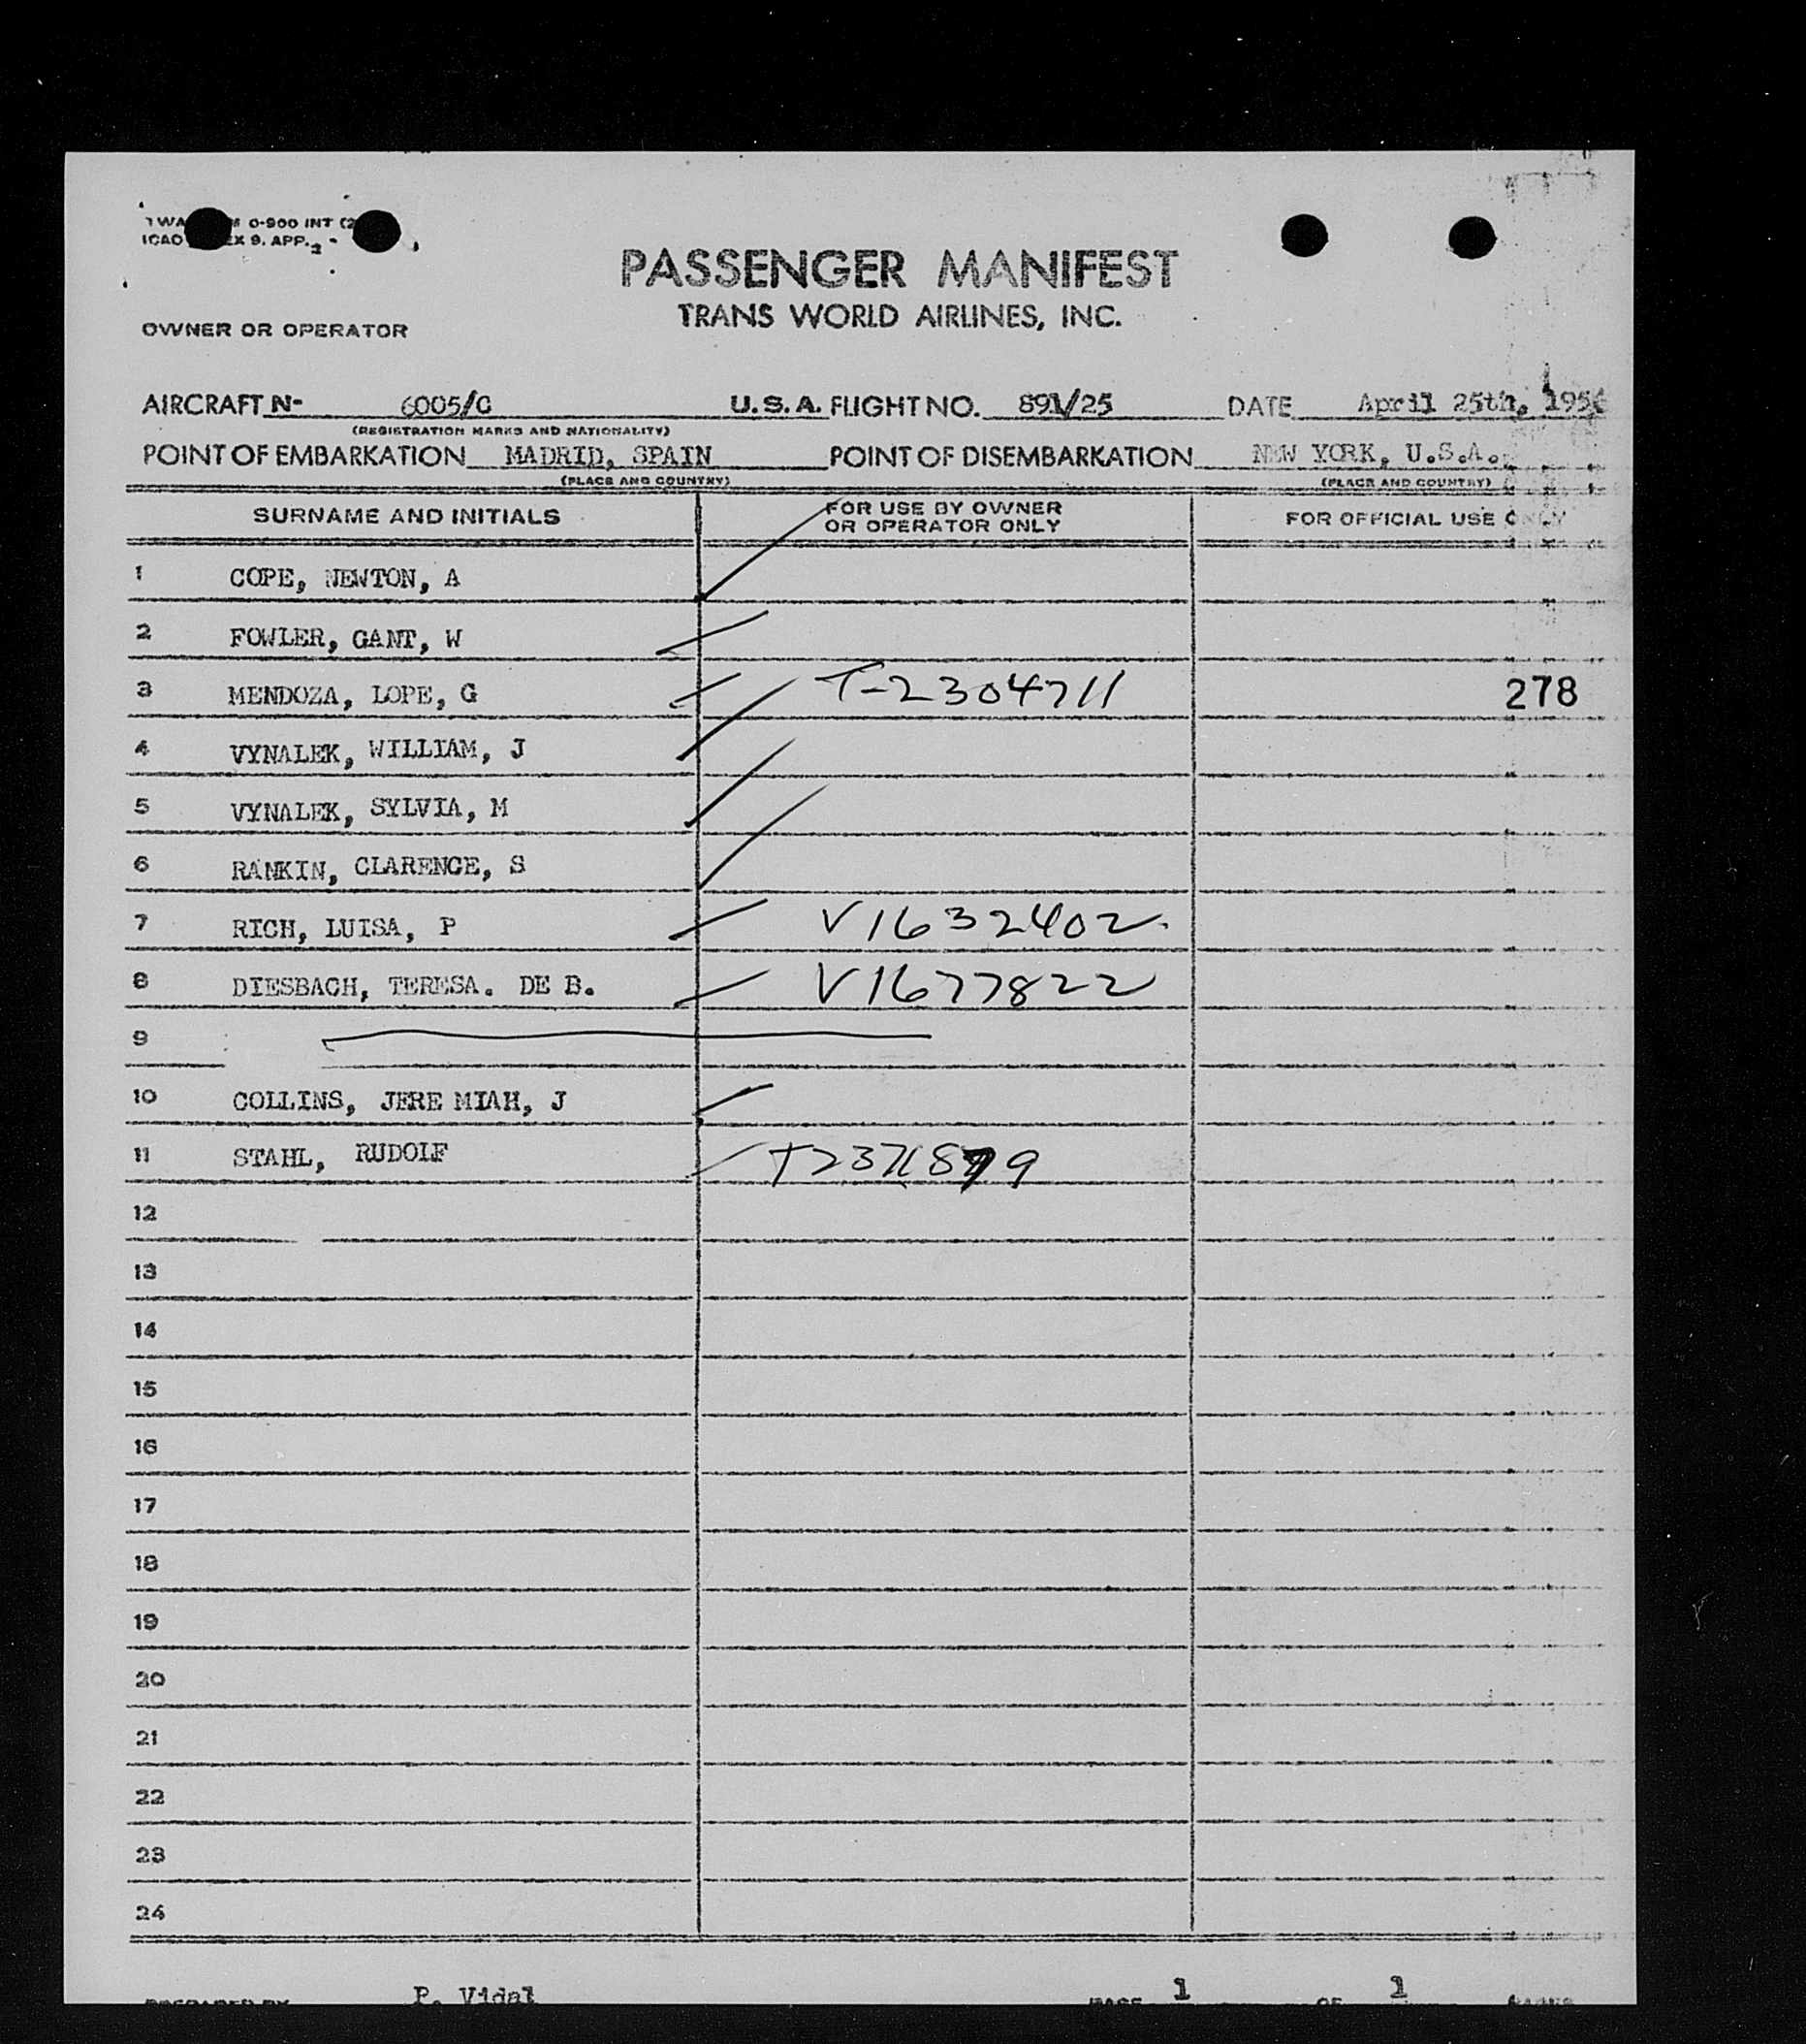 0-900 INT (2
ICAO EX 9. APP. 2 -
PASSENGER MANIFEST
TRANS WORLD AIRLINES, INC.
OWNER OR OPERATOR
AIRCRAFT N- 6005/C U.S.A. FLIGHT NO. 891/25 DATE April 25th,
(REGISTRATION MARKS AND NATIONALITY)
POINT OF EMBARKATION MADRID, SPAIN POINT OF DISEMBARKATION NEW YORK, U.S.A.
(PLACE AND COUNTRY) (PLACE AND COUNTRY)
SURNAME AND INITIALS FOR USE BY OWNER OR OPERATOR ONLY FOR OFFICIAL USE ONLY
1 COPE, NEWTON, A
2 FOWLER, GANT, W
3 MENDOZA, LOPE, G T-2304711 278
4 VYNALEK, WILLIAM, J
5 VYNALEK, SYLVIA, M
6 RANKIN, CLARENCE, S
7 RICH, LUISA, P V1632402
8 DIESBACH, TERESA. DE B. V1677822
9
10 COLLINS, JERE MIAH, J
11 STAHL, RUDOLF
12
13
14
15
16
17
18
19
20
21
22
23
24
PREPARED BY P. Vidal PAGE 1 OF 1 PAGES